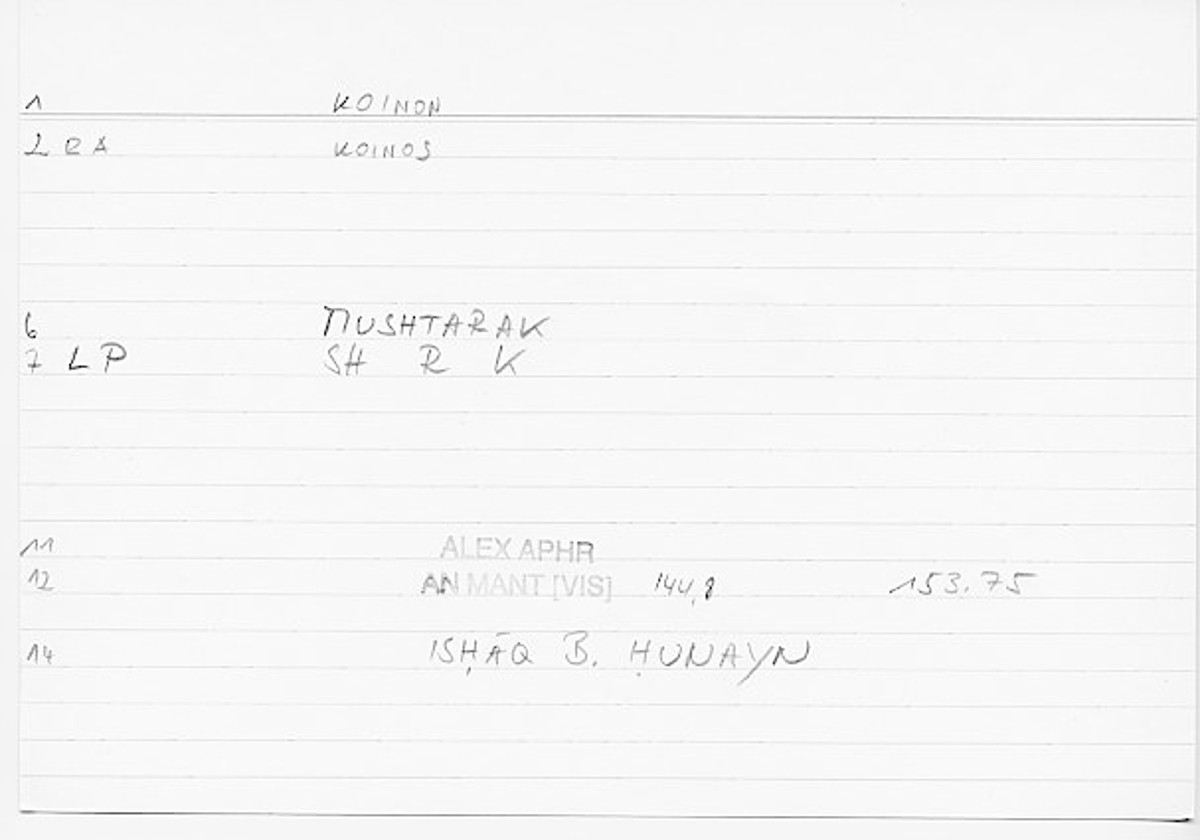 1 KOINON
2 C A KOINOS
6 MUSHTARAK
7 L P SH R K
11 ALEX APHR
12 AN MANT [VIS] 144,8 153.75
14 ISḤĀQ B. ḤUNAYN